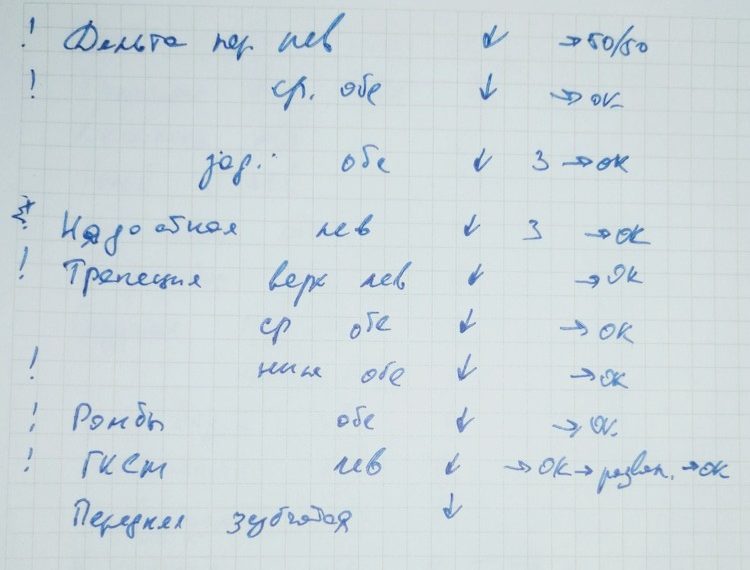 ! Дельта пер лев ↓ → 50/50
! ср. обе ↓ → ок
зад. обе ↓ 3 → ок
Надостная лев ↓ 3 → ок
! Трапеция верх лев ↓ → ок
ср обе ↓ → ок
! ниж обе ↓ → ок
! Ромбы обе ↓ → ок
! ГКСМ лев ↓ → ок → → ок
Передняя зубчатая ↓